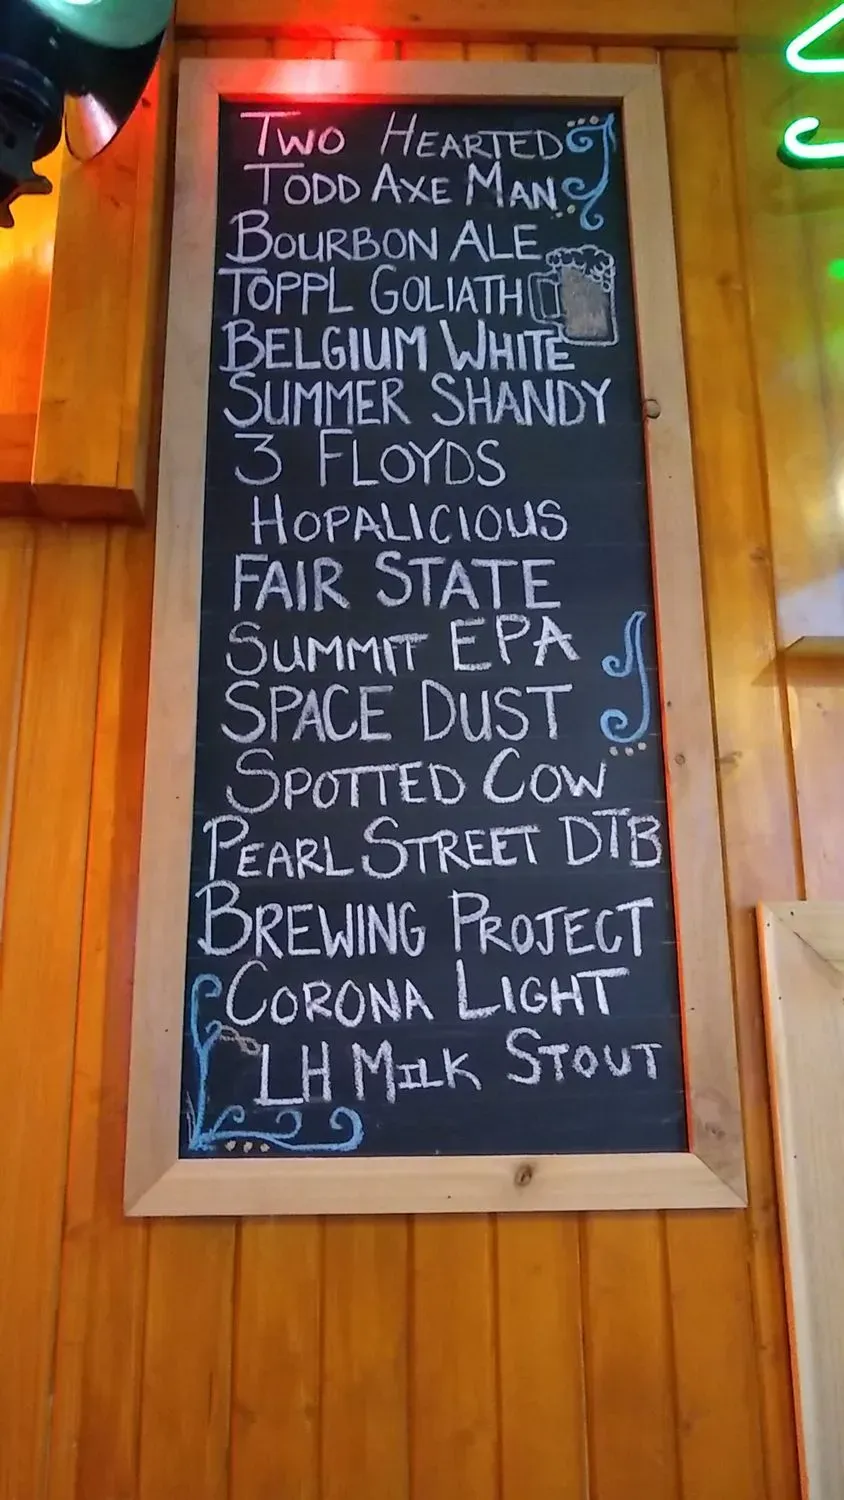 Two Hearted
Todd Axe Man
Bourbon Ale
Toppl Goliath
Belgium White
Summer Shandy
3 Floyds
Hopalicious
Fair State
Summit EPA
Space Dust
Spotted Cow
Pearl Street DTB
Brewing Project
Corona Light
LH Milk Stout